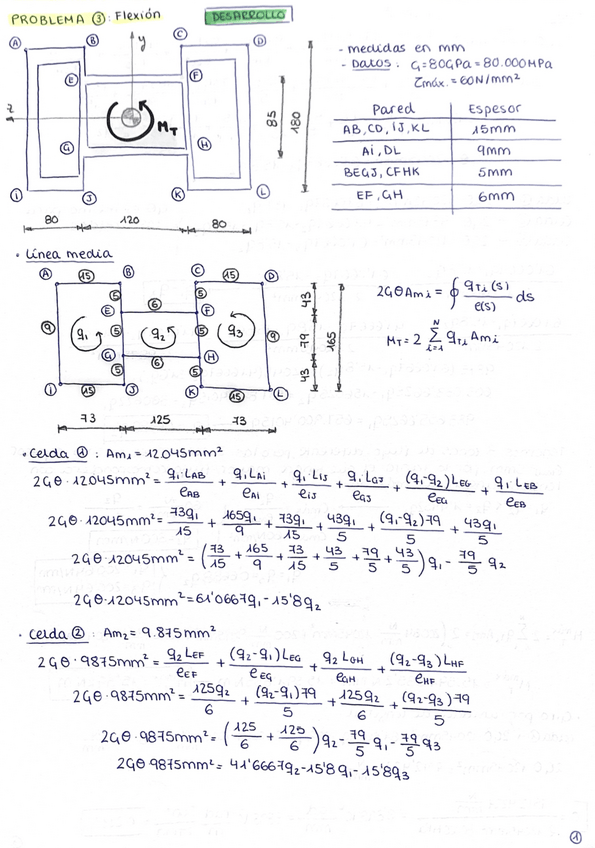 PROBLEMA ③: Flexión
DESARROLLO
A B C D
y
E F
z
MT
G H
I J K L
85
180
80 120 80
- medidas en mm
- DATOS: G=80GPa=80.000MPa
τmáx.=60N/mm²
Pared Espesor
AB,CD,IJ,KL 15mm
Ai,DL 9mm
BEGJ,CFHK 5mm
EF,GH 6mm
• Línea media
A 15 B C 15 D
5 5
E 6 F
9 q1 5 q2 5 q3 9
G 6 H
5 5
I 15 J K 15 L
43
79
43
165
73 125 73
2GθAmi = ∮ qTi(s)/e(s) ds
MT = 2 Σ i=1 N qTi Ami
• Celda ①: Am1 = 12045mm²
2Gθ·12045mm² = q1 LAB/eAB + q1 LAi/eAI + q1 LIJ/eIJ + q1 LGJ/eGJ + (q1-q2)LEG/eEG + q1 LEB/eEB
2Gθ·12045mm² = 73q1/15 + 165q1/9 + 73q1/15 + 43q1/5 + (q1-q2)79/5 + 43q1/5
2Gθ·12045mm² = (73/15 + 165/9 + 73/15 + 43/5 + 79/5 + 43/5) q1 - 79/5 q2
2Gθ·12045mm² = 61'0667q1 - 15'8q2
• Celda ②: Am2 = 9.875mm²
2Gθ·9875mm² = q2 LEF/eEF + (q2-q1)LEG/eEG + q2 LGH/eGH + (q2-q3)LHF/eHF
2Gθ·9875mm² = 125q2/6 + (q2-q1)79/5 + 125q2/6 + (q2-q3)79/5
2Gθ·9875mm² = (125/6 + 125/6) q2 - 79/5 q1 - 79/5 q3
2Gθ 9875mm² = 41'6667q2 - 15'8q1 - 15'8q3
①